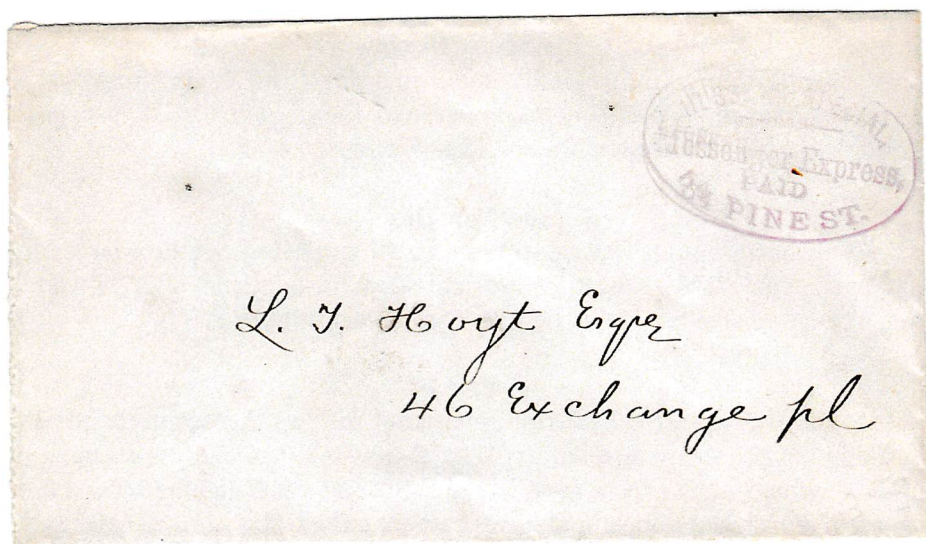 Messenger Express,
PAID
PINE ST.
L. T. Hoyt Esqre
46 Exchange pl